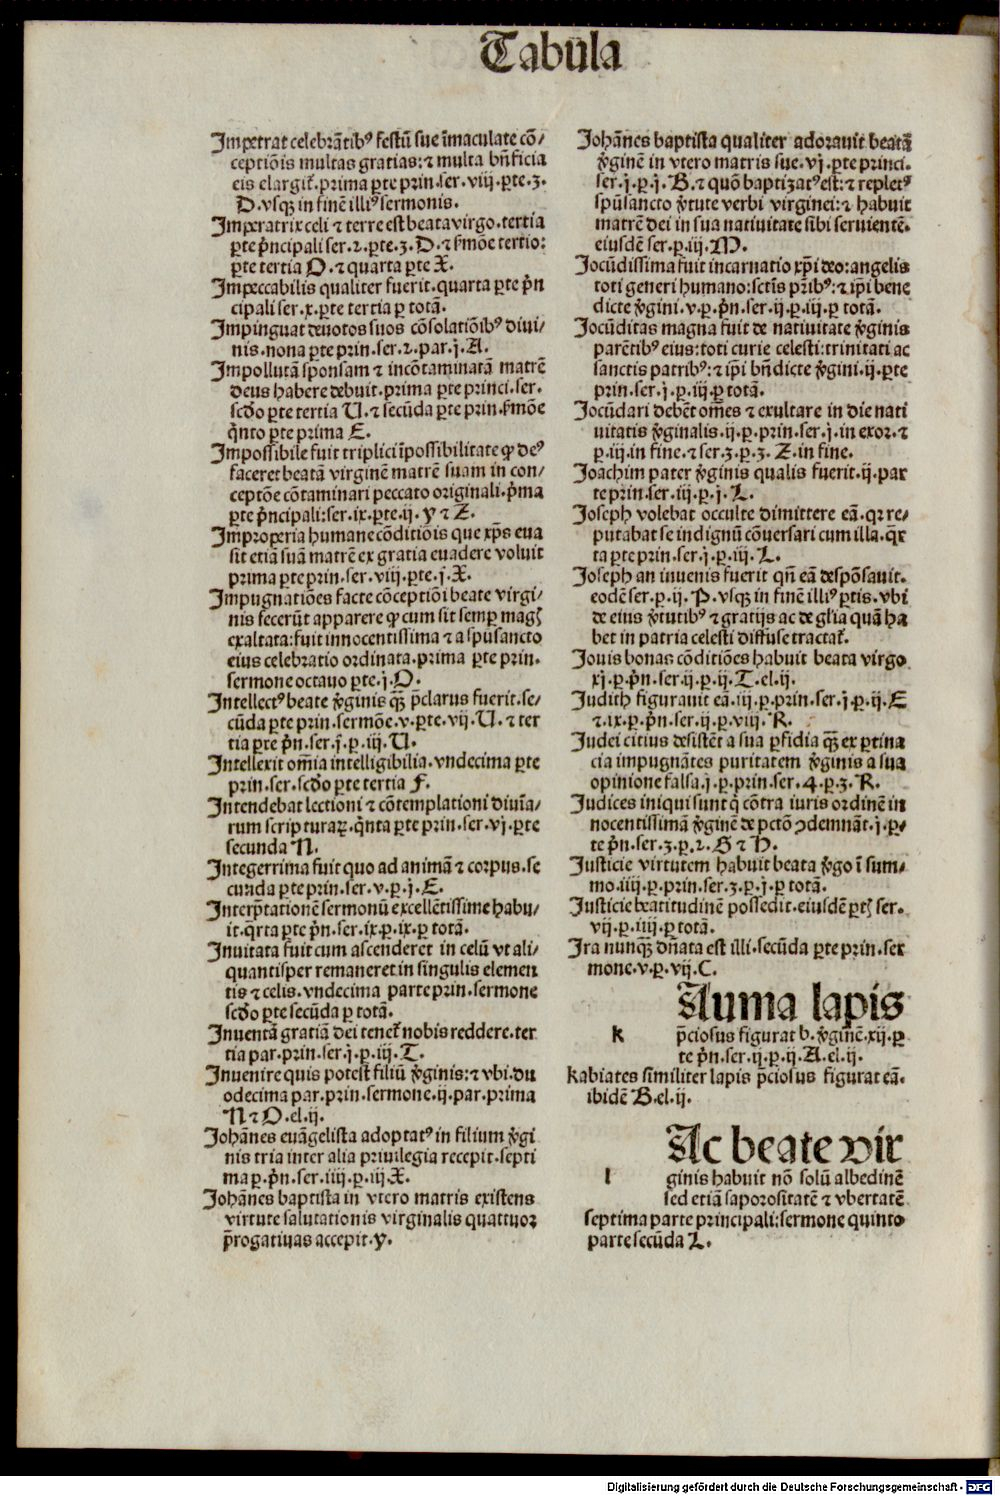 Tabula
Impetrat celebrātibꝰ festū sue īmaculate cō/
ceptiōis multas gratias: ⁊ multa bn̄ficia
eis elargit̄. prima ꝑte prin. ser. viij. ꝑte. 3.
D. vsqꝫ in finē illiꝰ sermonis.
Imperatrix celi ⁊ terre est beata virgo. tertia
ꝑte p̄ncipali ser. 2. ꝑte. 3. D. ⁊ ẜmōe tertio:
ꝑte tertia O. ⁊ quarta ꝑte X.
Impeccabilis qualiter fuerit. quarta ꝑte p̄n
cipali ser. x. ꝑte tertia ꝑ totā.
Impinguat deuotos suos cōsolatiōibꝰ diui/
nis. nona ꝑte prin. ser. 2. par. j. A.
Impollutā sponsam ⁊ incōtaminatā matrē
deus habere debuit. prima ꝑte princi. ser.
scd̄o ꝑte tertia U. ⁊ secūda ꝑte prin. ẜmōe
q̄nto ꝑte prima E.
Impossibile fuit triplici īpossibilitate ꝙ deꝰ
faceret beatā virginē matrē suam in con/
ceptōe cōtaminari peccato originali. p̄ma
ꝑte p̄ncipali: ser. ix. ꝑte. ij. Y ⁊ Z.
Improperia humane cōditiōis que xp̄s eua
sit etiā suā matrē ex gratia euadere voluit
prima ꝑte prin. ser. viij. ꝑte. j. X.
Impugnatiōes facte cōceptiōi beate virgi/
nis fecerūt apparere ꝙ cum sit semꝑ magꝭ
exaltata: fuit innocentissima ⁊ a spūsancto
eius celebratio ordinata. prima ꝑte prin.
sermone octauo ꝑte. j. O.
Intellectꝰ beate v̄ginis qꝫ̄ p̄clarus fuerit. se/
cūda ꝑte prin. sermōe. v. ꝑte. vij. U. ⁊ ter
tia ꝑte p̄n. ser. j. ꝑ. iij. U.
Intellexit om̄ia intelligibilia. vndecima ꝑte
prin. ser. scd̄o ꝑte tertia F.
Intendebat lectioni ⁊ cōtemplationi diuīa/
rum scripturaꝝ. q̄nta ꝑte prin. ser. vj. ꝑte
secunda N.
Integerrima fuit quo ad animā ⁊ corpus. se
cunda ꝑte prin. ser. v. ꝑ. j. E.
Interp̄tationē sermonū excellētissime habu/
it. q̄rta ꝑte p̄n. ser. ix. ꝑ. ix. ꝑ totā.
Inuitata fuit cum ascenderet in celū vt ali/
quantisper remaneret in singulis elemen
tis ⁊ celis. vndecima parte prin. sermone
scd̄o ꝑte secūda ꝑ totā.
Inuentā gratiā dei tenet̄ nobis reddere. ter
tia par. prin. ser. j. ꝑ. iij. T.
Inuenire quis potest filiū v̄ginis: ⁊ vbi. du
odecima par. prin. sermone. ij. par. prima
N ⁊ O. el. ij.
Johānes euāgelista adoptatꝰ in filium v̄gi
nis tria inter alia priuilegia recepit. septi
ma ꝑ. p̄n. ser. iiij. ꝑ. iij. X.
Johānes baptista in vtero matris existens
virtute salutationis virginalis quattuor
p̄rogatiuas accepit. y.
Johānes baptista qualiter adorauit beatā
v̄ginē in vtero matris sue. vj. ꝑte princi.
ser. j. ꝑ. j. B. ⁊ quō baptizatꝰ est: ⁊ repletꝰ
spūsancto v̄tute verbi virginei: ⁊ habuit
matrē dei in sua natiuitate sibi seruientē.
eiusdē ser. ꝑ. iij. M.
Jocūdissima fuit incarnatio xp̄i deo: angelis
toti generi humano: sctīs pr̄ibꝰ: ⁊ ip̄i bene
dicte v̄gini. v. ꝑ. p̄n. ser. ij. ꝑ. iij. ꝑ totā.
Jocūditas magna fuit de natiuitate v̄ginis
parētibꝰ eius: toti curie celesti: trinitati ac
sanctis patribꝰ: ⁊ ip̄i bn̄dicte v̄gini. ij. ꝑte
prin. ser. j. ꝑ. iij. ꝑ totā.
Jocūdari debēt om̄es ⁊ exultare in die nati
uitatis v̄ginalis. ij. ꝑ. prin. ser. j. in exor. ⁊
ꝑ. iij. in fine. ⁊ ser. 3. ꝑ. 3. Z. in fine.
Joachim pater v̄ginis qualis fuerit. ij. par
te prin. ser. iij. ꝑ. j. L.
Joseph volebat occulte dimittere eā. qꝛ re/
putabat se indignū cōuersari cum illa. q̄r
ta ꝑte prin. ser. j. ꝑ. iij. L.
Joseph an iuuenis fuerit qn̄ eā despōsauit.
eodē ser. ꝑ. ij. P. vsqꝫ in finē illiꝰ ꝑtis. vbi
de eius v̄tutibꝰ ⁊ gratijs ac de gl̄ia quā ha
bet in patria celesti diffuse tractat̄.
Jouis bonas cōditiōes habuit beata virgo
xj. ꝑ. p̄n. ser. ij. ꝑ. ij. T. el. ij.
Judith figurauit eā. iij. ꝑ. prin. ser. j. ꝑ. ij. E
⁊. ix. ꝑ. p̄n. ser. ij. ꝑ. viij. R.
Judei citius desistēt a sua ꝑfidia qꝫ̄ ex ꝑtina
cia impugnātes puritatem v̄ginis a sua
opinione falsa. j. ꝑ. prin. ser. 4. ꝑ. 3. R.
Judices iniqui sunt q̄ cōtra iuris ordinē in
nocentissimā v̄ginē de pctō ꝯdemnāt. j. ꝑ/
te p̄n. ser. 3. ꝑ. 2. G ⁊ H.
Justicie virtutem habuit beata v̄go ī sum/
mo. iiij. ꝑ. prin. ser. 3. ꝑ. j. ꝑ totā.
Justicie beatitudinē possedit. eiusdē ꝑtꝭ ser.
vij. ꝑ. iiij. ꝑ totā.
Ira nunqꝫ̄ dn̄ata est illi. secūda ꝑte prin. ser
mone. v. ꝑ. vij. C.
Auma lapis
k p̄ciosus figurat b. v̄ginē. xij. ꝑ
te p̄n. ser. ij. ꝑ. ij. A. el. ij.
Kabiates similiter lapis p̄ciosus figurat eā.
ibidē B. el. ij.
Ac beate vir
l ginis habuit nō solū albedinē
sed etiā saporositatē ⁊ vbertatē
septima parte principali: sermone quinto
parte secūda L.
Digitalisierung gefördert durch die Deutsche Forschungsgemeinschaft - DFG